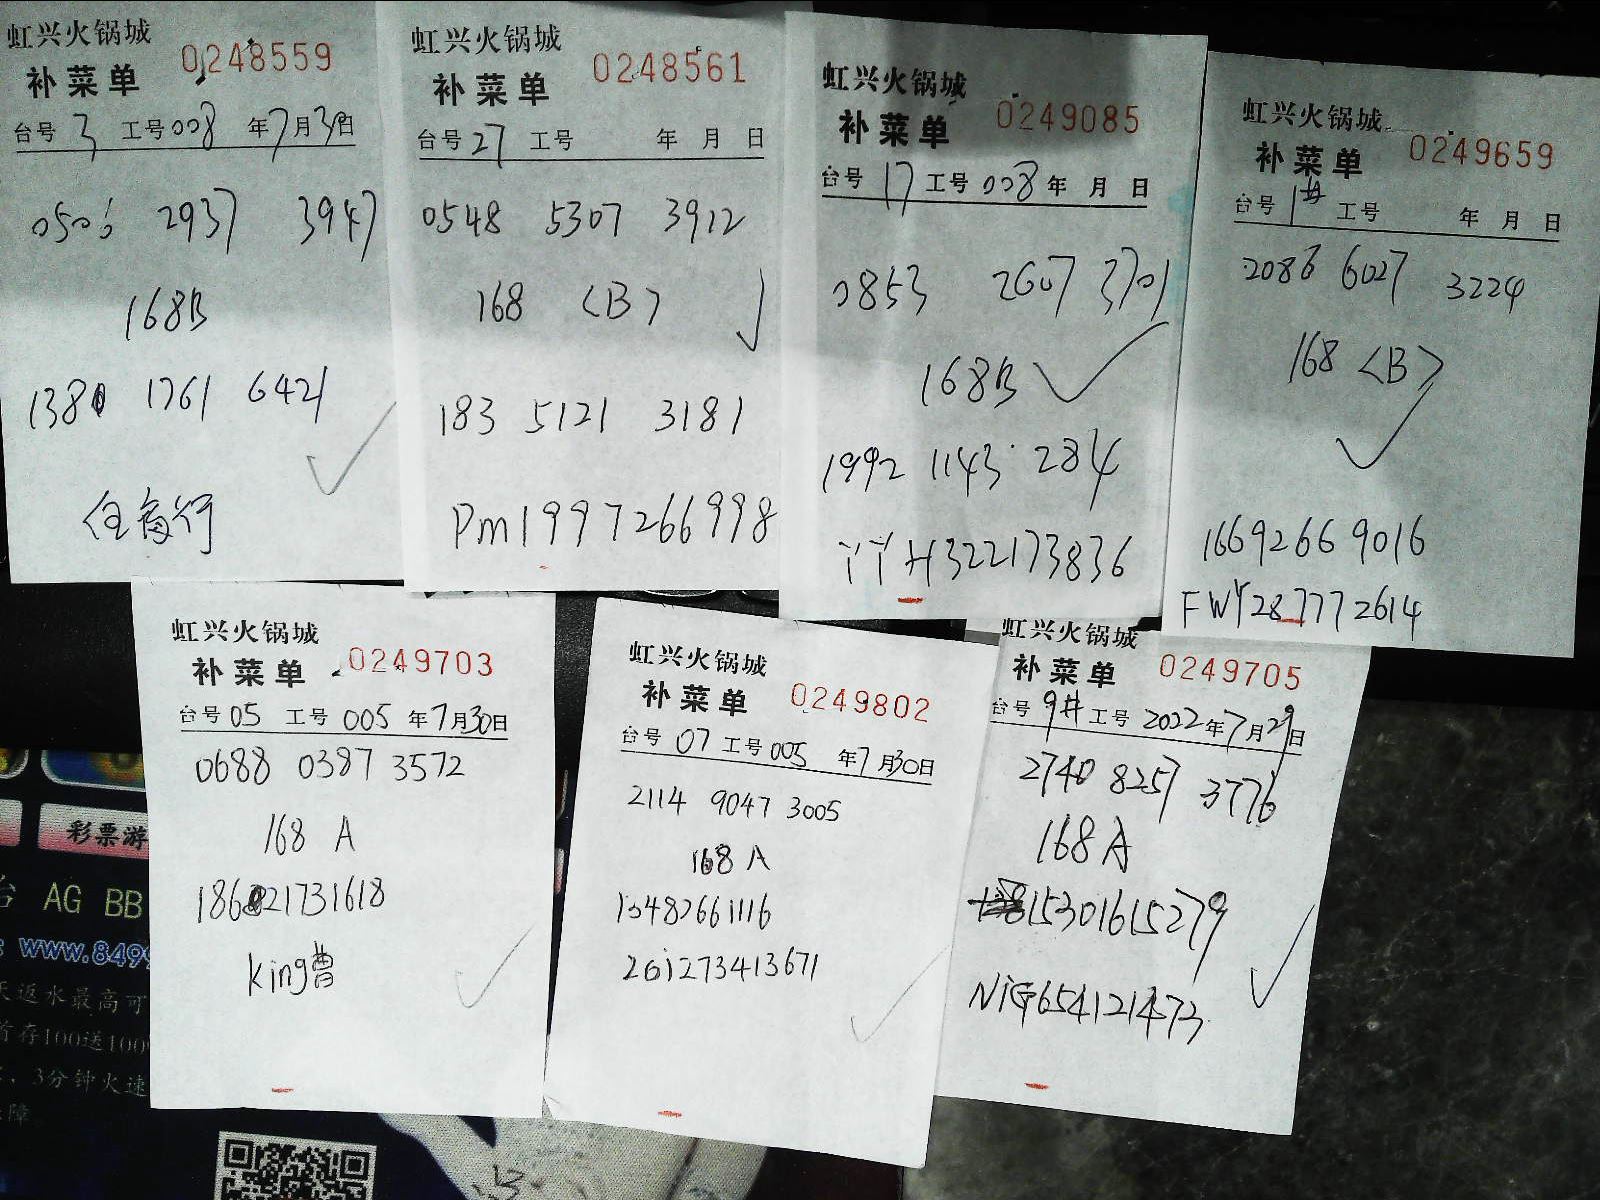 虹兴火锅城
0248559
补菜单
台号 3 工号 008 年 7 月 30 日
0505 2937 3947
168B
1380 1761 6421
虹兴火锅城
0248561
补菜单
台号 27 工号 年 月 日
0548 5307 3912
168 <B>
183 5121 3181
Pm1997266998
虹兴火锅城
0249085
补菜单
台号 17 工号 008 年 月 日
0853 2607 3701
168B
1992 1143 284
YYH322173836
虹兴火锅城
0249659
补菜单
台号 1# 工号 年 月 日
2086 6027 3224
168 <B>
16692669016
FWY287772614
虹兴火锅城
0249703
补菜单
台号 05 工号 005 年 7 月 30 日
0688 0387 3572
168 A
18621731618
king曹
虹兴火锅城
0249802
补菜单
台号 07 工号 005 年 7 月 30 日
2114 9047 3005
168 A
13482661116
261273413671
虹兴火锅城
0249705
补菜单
台号 9# 工号 2022 年 7 月 29 日
2740 8257 3776
168 A
15301615279
NiG654121473
彩票游
台 AG BB
www.849
天返水最高可
首存100送100
3分钟火速
障